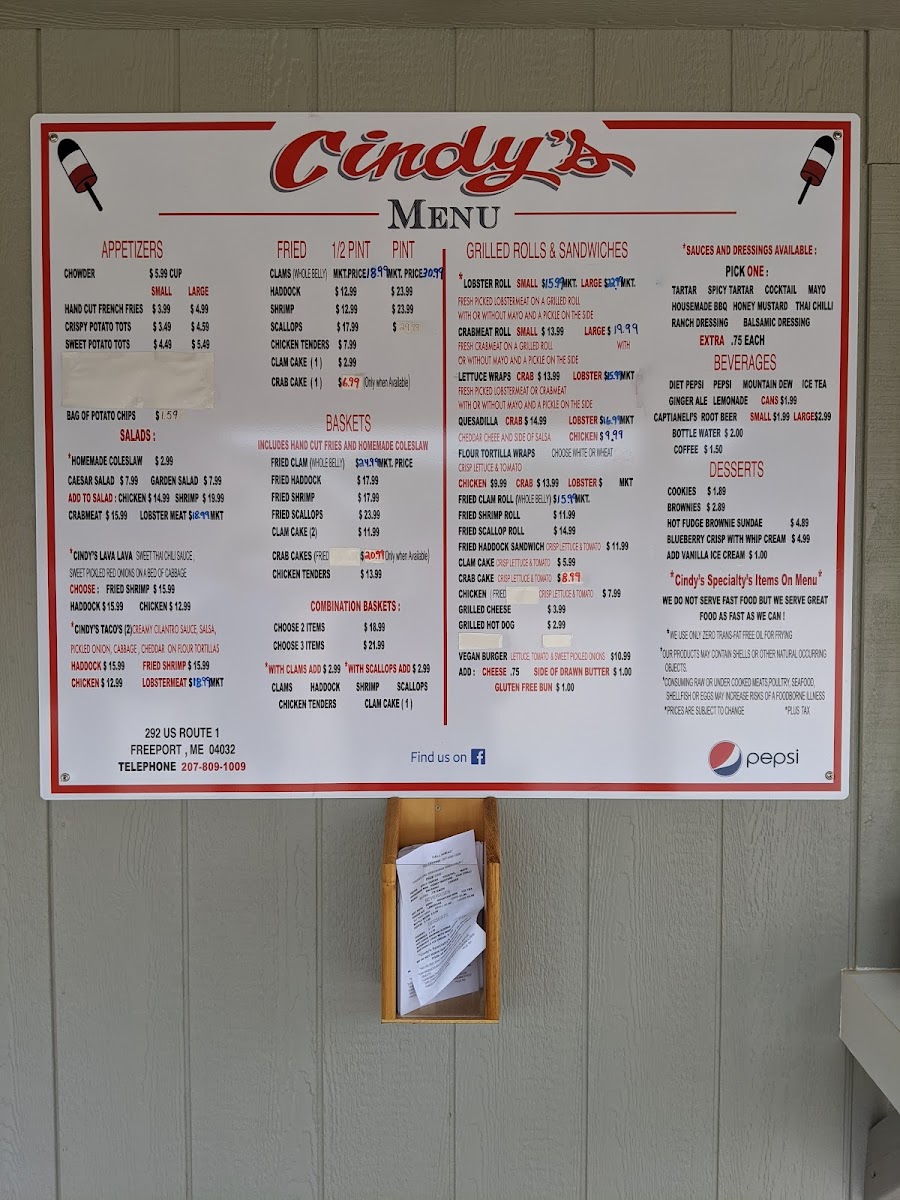 Cindy's
MENU
APPETIZERS
CHOWDER $ 5.99 CUP
SMALL LARGE
HAND CUT FRENCH FRIES $ 3.99 $ 4.99
CRISPY POTATO TOTS $ 3.49 $ 4.59
SWEET POTATO TOTS $ 4.49 $ 5.49
BAG OF POTATO CHIPS $ 1.59
SALADS :
*HOMEMADE COLESLAW $ 2.99
CAESAR SALAD $ 7.99 GARDEN SALAD $ 7.99
ADD TO SALAD : CHICKEN $ 14.99 SHRIMP $ 19.99
CRABMEAT $ 15.99 LOBSTER MEAT $18.99MKT
*CINDY'S LAVA LAVA SWEET THAI CHILI SAUCE,
SWEET PICKLED RED ONIONS ON A BED OF CABBAGE
CHOOSE : FRIED SHRIMP $ 15.99
HADDOCK $ 15.99 CHICKEN $ 12.99
*CINDY'S TACO'S (2)CREAMY CILANTRO SAUCE, SALSA,
PICKLED ONION, CABBAGE , CHEDDAR ON FLOUR TORTILLAS
HADDOCK $ 15.99 FRIED SHRIMP $ 15.99
CHICKEN $ 12.99 LOBSTERMEAT $18.99MKT
292 US ROUTE 1
FREEPORT , ME 04032
TELEPHONE 207-809-1009
FRIED 1/2 PINT PINT
CLAMS (WHOLE BELLY) MKT.PRICE18.99 MKT. PRICE30.99
HADDOCK $ 12.99 $ 23.99
SHRIMP $ 12.99 $ 23.99
SCALLOPS $ 17.99 $
CHICKEN TENDERS $ 7.99
CLAM CAKE ( 1 ) $ 2.99
CRAB CAKE ( 1 ) $6.99 (Only when Available)
BASKETS
INCLUDES HAND CUT FRIES AND HOMEMADE COLESLAW
FRIED CLAM (WHOLE BELLY) $24.99MKT. PRICE
FRIED HADDOCK $ 17.99
FRIED SHRIMP $ 17.99
FRIED SCALLOPS $ 23.99
CLAM CAKE (2) $ 11.99
CRAB CAKES (FRIED $20.99 Only when Available)
CHICKEN TENDERS $ 13.99
COMBINATION BASKETS :
CHOOSE 2 ITEMS $ 18.99
CHOOSE 3 ITEMS $ 21.99
*WITH CLAMS ADD $ 2.99 *WITH SCALLOPS ADD $ 2.99
CLAMS HADDOCK SHRIMP SCALLOPS
CHICKEN TENDERS CLAM CAKE ( 1 )
Find us on f
GRILLED ROLLS & SANDWICHES
*LOBSTER ROLL SMALL $15.99MKT. LARGE $ MKT.
FRESH PICKED LOBSTERMEAT ON A GRILLED ROLL
WITH OR WITHOUT MAYO AND A PICKLE ON THE SIDE
CRABMEAT ROLL SMALL $ 13.99 LARGE $ 19.99
FRESH CRABMEAT ON A GRILLED ROLL WITH
OR WITHOUT MAYO AND A PICKLE ON THE SIDE
LETTUCE WRAPS CRAB $ 13.99 LOBSTER $15.99MKT
FRESH PICKED LOBSTERMEAT OR CRABMEAT
WITH OR WITHOUT MAYO AND A PICKLE ON THE SIDE
QUESADILLA CRAB $ 14.99 LOBSTER $16.99MKT
CHEDDAR CHEEE AND SIDE OF SALSA CHICKEN $ 9.99
FLOUR TORTILLA WRAPS CHOOSE WHITE OR WHEAT
CRISP LETTUCE & TOMATO
CHICKEN $9.99 CRAB $ 13.99 LOBSTER $ MKT
FRIED CLAM ROLL (WHOLE BELLY) $15.99MKT.
FRIED SHRIMP ROLL $ 11.99
FRIED SCALLOP ROLL $ 14.99
FRIED HADDOCK SANDWICH CRISP LETTUCE & TOMATO $ 11.99
CLAM CAKE CRISP LETTUCE & TOMATO $ 5.99
CRAB CAKE CRISP LETTUCE & TOMATO $8.99
CHICKEN (FRIED CRISP LETTUCE & TOMATO $ 7.99
GRILLED CHEESE $ 3.99
GRILLED HOT DOG $ 2.99
VEGAN BURGER LETTUCE, TOMATO & SWEET PICKLED ONIONS $10.99
ADD : CHEESE .75 SIDE OF DRAWN BUTTER $ 1.00
GLUTEN FREE BUN $ 1.00
*SAUCES AND DRESSINGS AVAILABLE :
PICK ONE :
TARTAR SPICY TARTAR COCKTAIL MAYO
HOUSEMADE BBQ HONEY MUSTARD THAI CHILLI
RANCH DRESSING BALSAMIC DRESSING
EXTRA .75 EACH
BEVERAGES
DIET PEPSI PEPSI MOUNTAIN DEW ICE TEA
GINGER ALE LEMONADE CANS $1.99
CAPTIANELI'S ROOT BEER SMALL $1.99 LARGE$2.99
BOTTLE WATER $ 2.00
COFFEE $ 1.50
DESSERTS
COOKIES $ 1.89
BROWNIES $ 2.89
HOT FUDGE BROWNIE SUNDAE $ 4.89
BLUEBERRY CRISP WITH WHIP CREAM $ 4.99
ADD VANILLA ICE CREAM $ 1.00
*Cindy's Specialty's Items On Menu*
WE DO NOT SERVE FAST FOOD BUT WE SERVE GREAT
FOOD AS FAST AS WE CAN !
*WE USE ONLY ZERO TRANS-FAT FREE OIL FOR FRYING
*OUR PRODUCTS MAY CONTAIN SHELLS OR OTHER NATURAL OCCURRING
OBJECTS.
*CONSUMING RAW OR UNDER COOKED MEATS,POULTRY, SEAFOOD,
SHELLFISH OR EGGS MAY INCREASE RISKS OF A FOODBORNE ILLNESS
*PRICES ARE SUBJECT TO CHANGE *PLUS TAX
pepsi